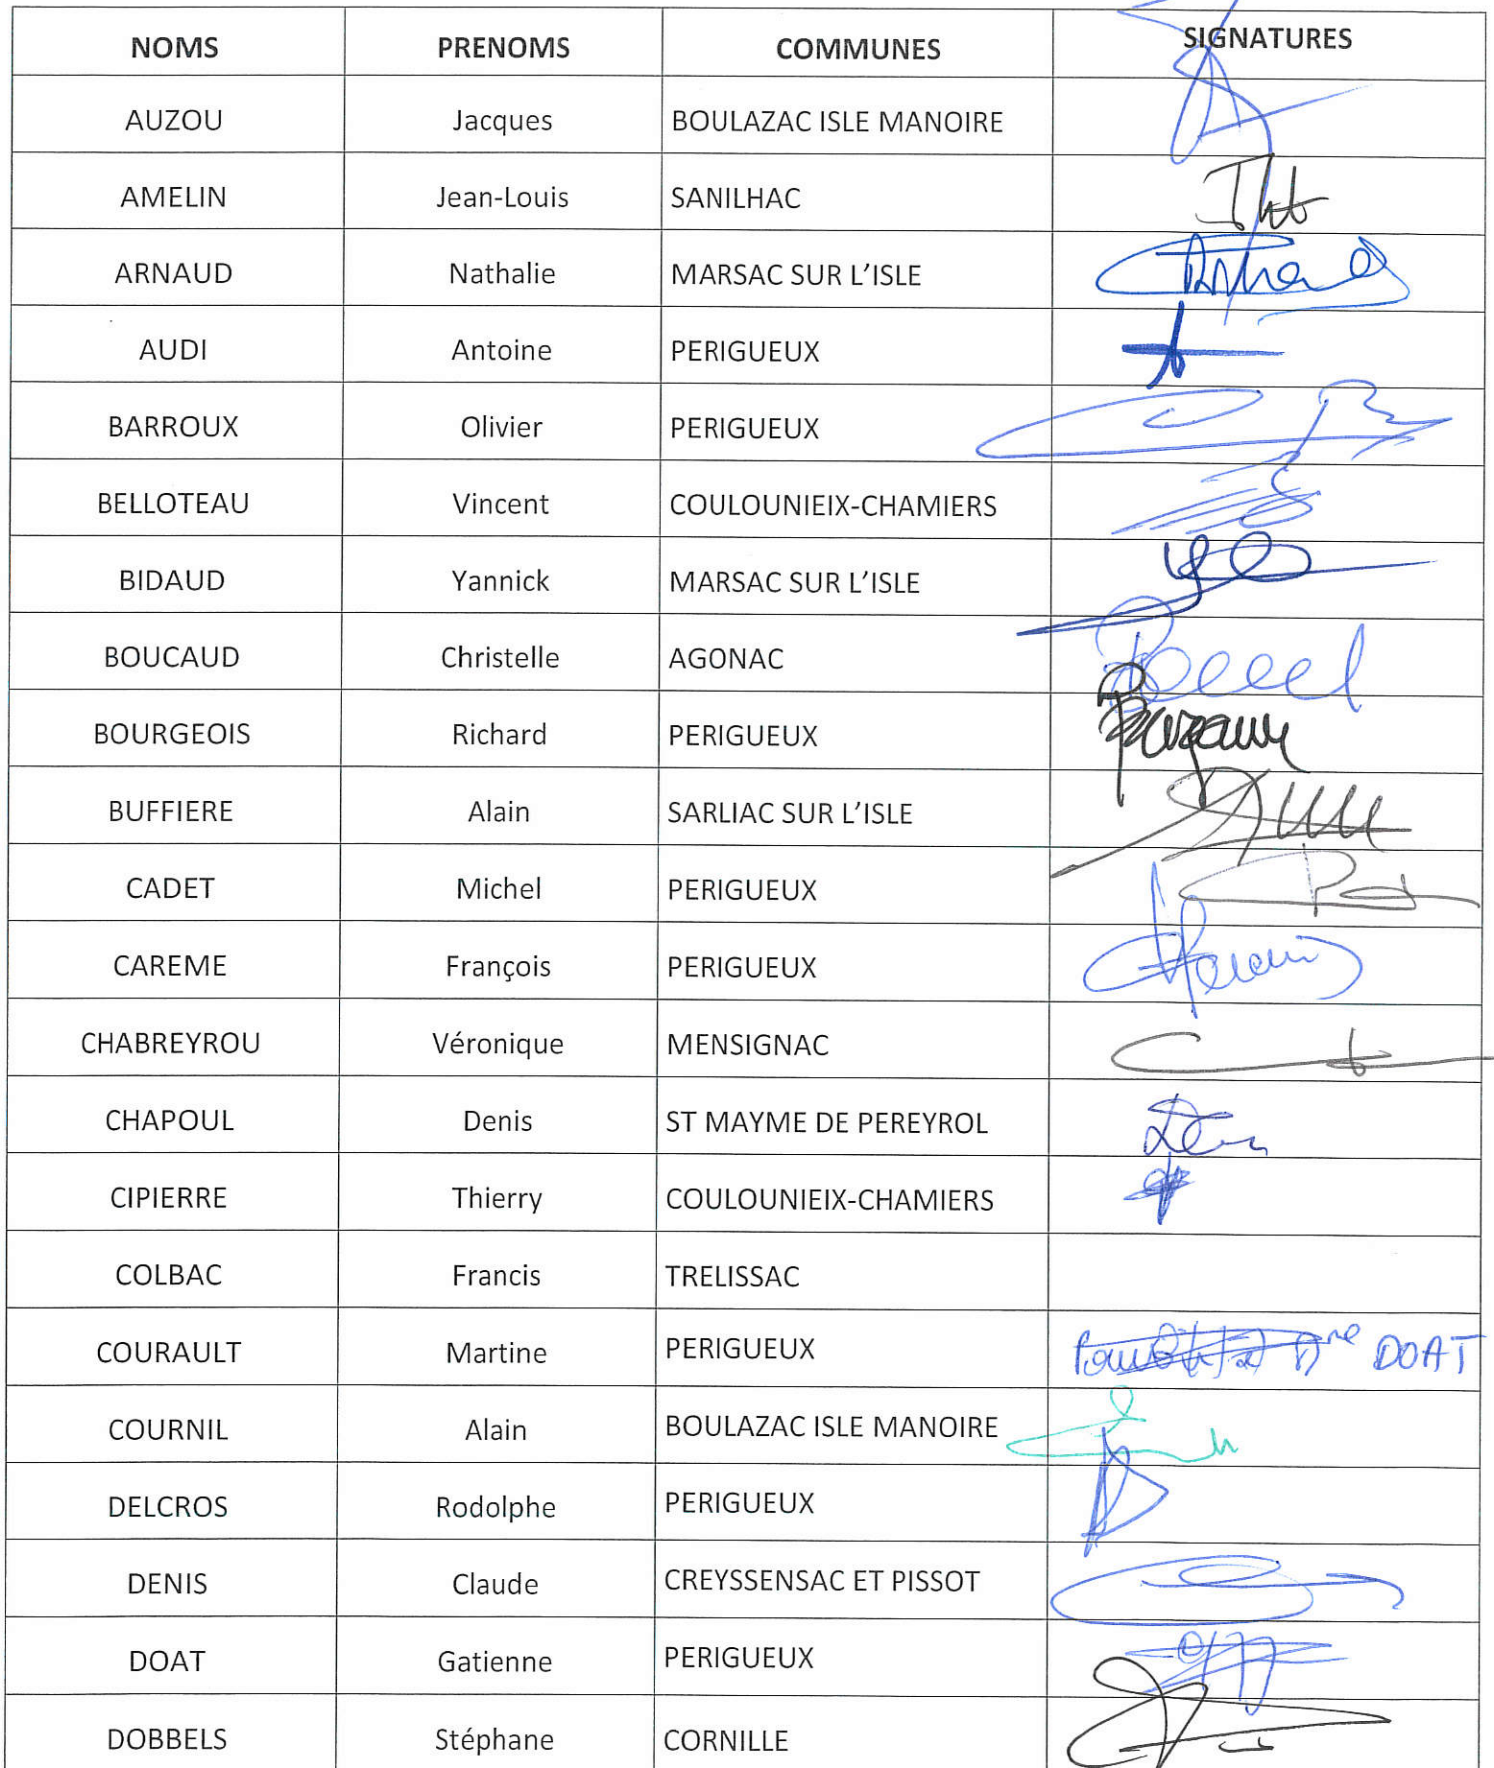 NOMS PRENOMS COMMUNES SIGNATURES
AUZOU Jacques BOULAZAC ISLE MANOIRE
AMELIN Jean-Louis SANILHAC
ARNAUD Nathalie MARSAC SUR L'ISLE
AUDI Antoine PERIGUEUX
BARROUX Olivier PERIGUEUX
BELLOTEAU Vincent COULOUNIEIX-CHAMIERS
BIDAUD Yannick MARSAC SUR L'ISLE
BOUCAUD Christelle AGONAC
BOURGEOIS Richard PERIGUEUX
BUFFIERE Alain SARLIAC SUR L'ISLE
CADET Michel PERIGUEUX
CAREME François PERIGUEUX
CHABREYROU Véronique MENSIGNAC
CHAPOUL Denis ST MAYME DE PEREYROL
CIPIERRE Thierry COULOUNIEIX-CHAMIERS
COLBAC Francis TRELISSAC
COURAULT Martine PERIGUEUX Mme DOAT
COURNIL Alain BOULAZAC ISLE MANOIRE
DELCROS Rodolphe PERIGUEUX
DENIS Claude CREYSSENSAC ET PISSOT
DOAT Gatienne PERIGUEUX
DOBBELS Stéphane CORNILLE